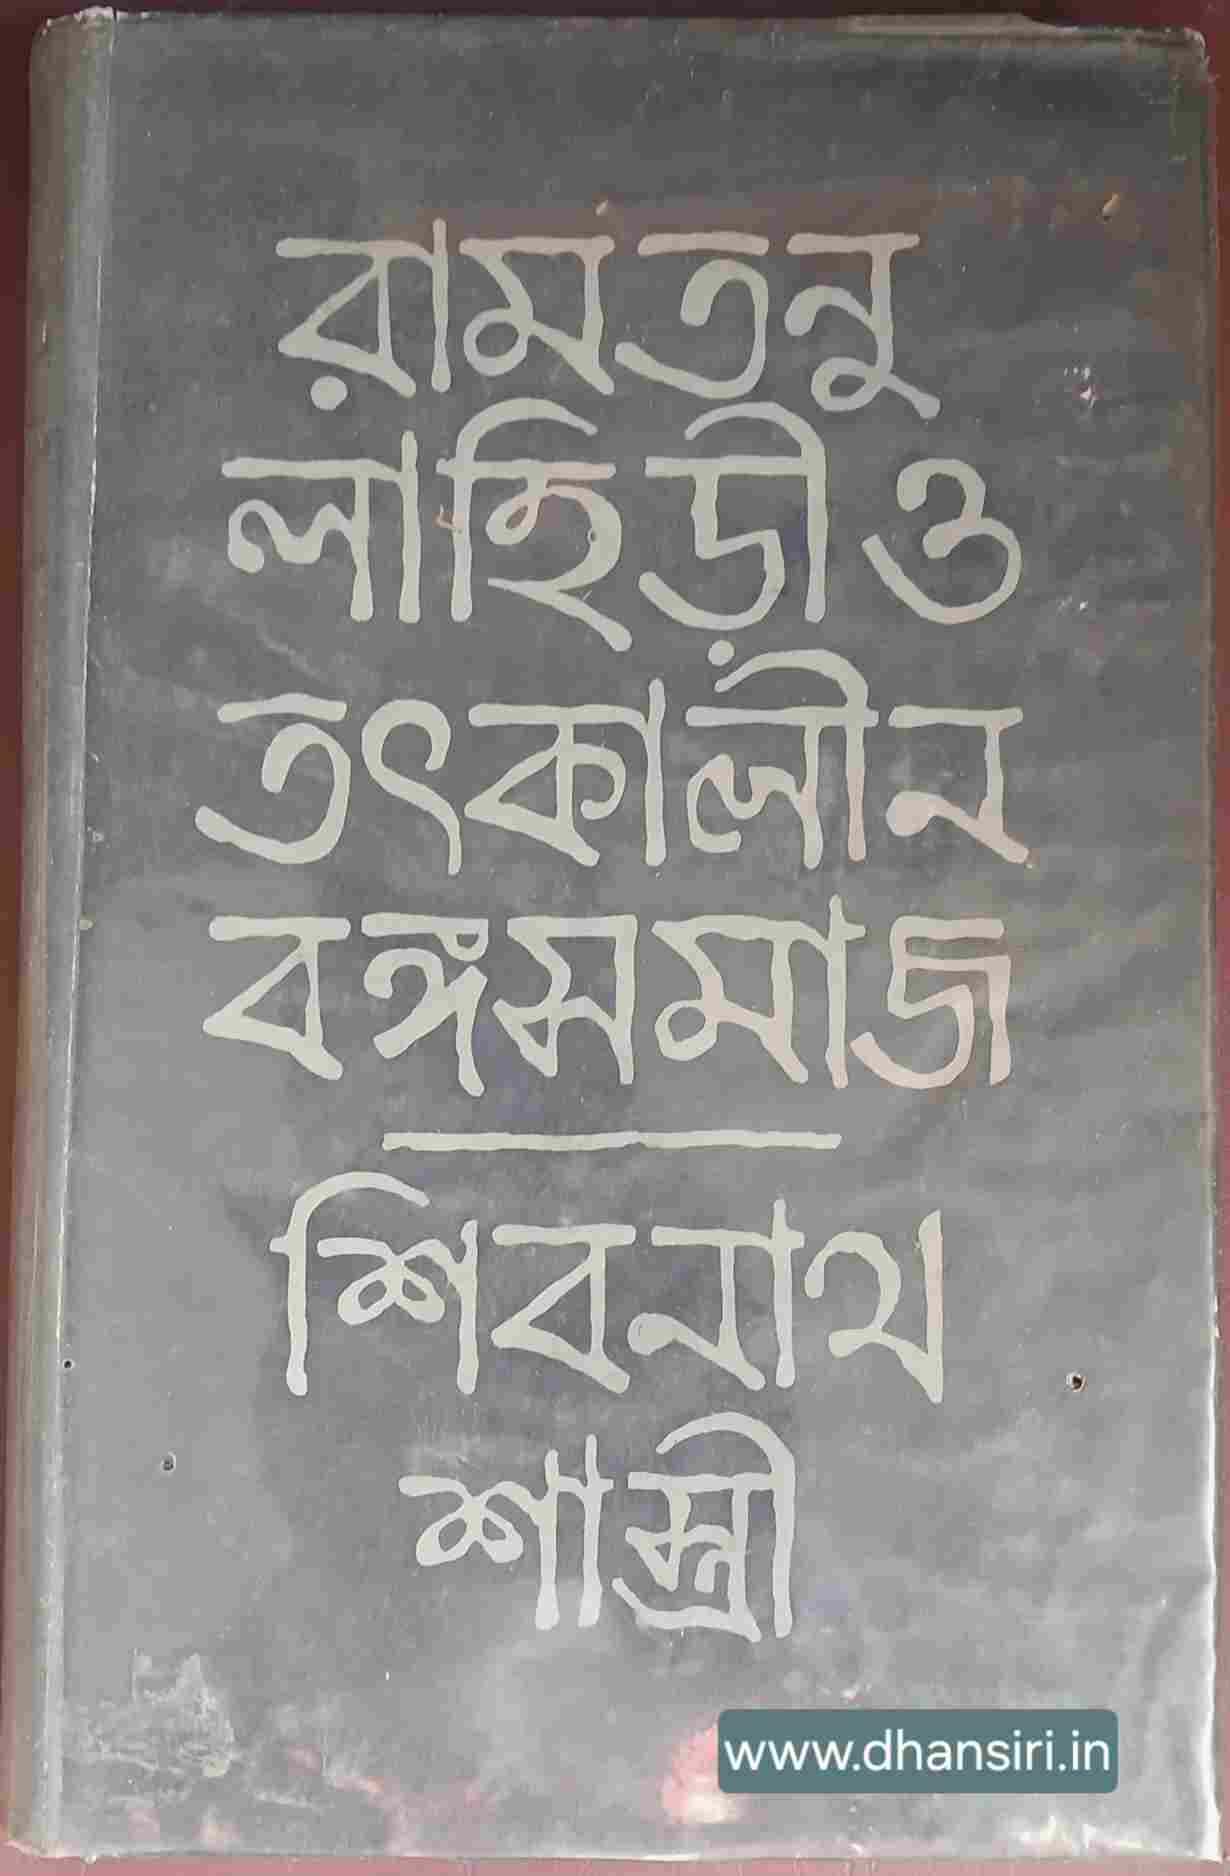 রামতনু
লাহিড়ী ও
তৎকালীন
বঙ্গসমাজ
শিবনাথ
শাস্ত্রী
www.dhansiri.in